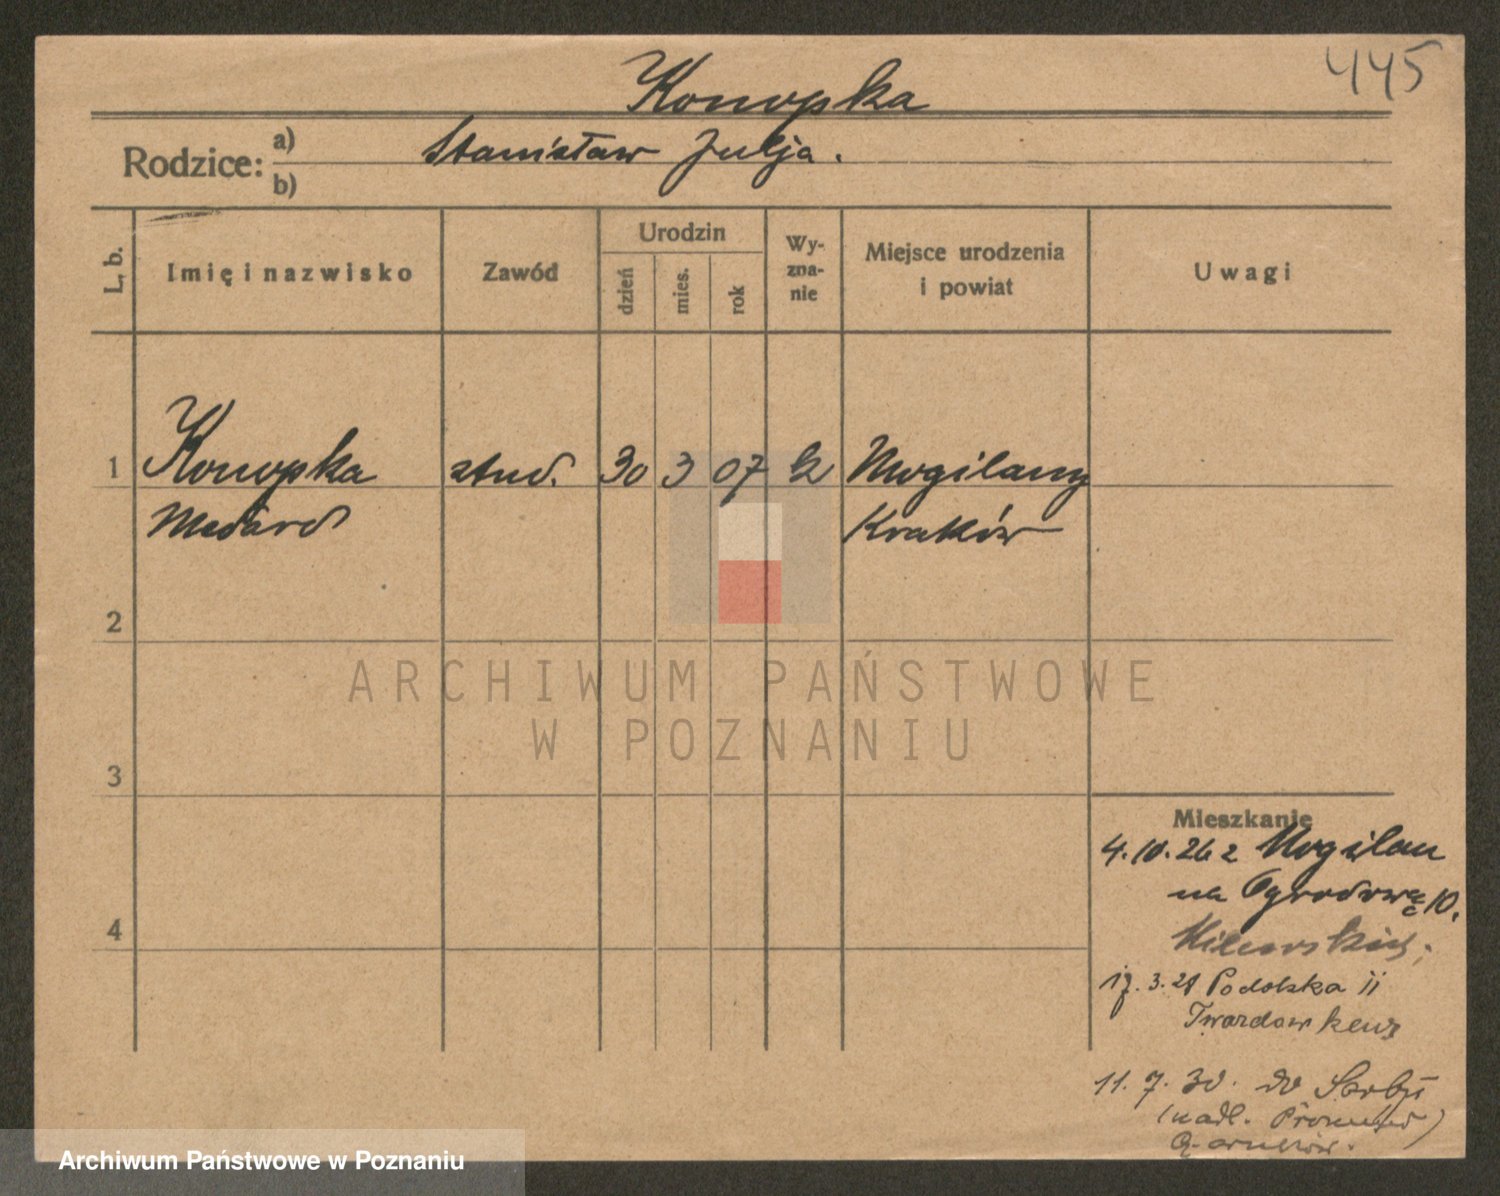 445
Konopka
Rodzice: a) Stanisław Julja.
b)
L. b. Imię i nazwisko Zawód Urodzin dzień mies. rok Wyzna-nie Miejsce urodzenia i powiat Uwagi
1 Konopka stud. 30 3 07 Mogilany
Medard Kraków
2
ARCHIWUM PAŃSTWOWE
W POZNANIU
3
Mieszkanie
4.10.26 z Mogilan
na Ogrodową 10.
4
3. Podolska 11
11.7.30. do
(nadl.
Archiwum Państwowe w Poznaniu